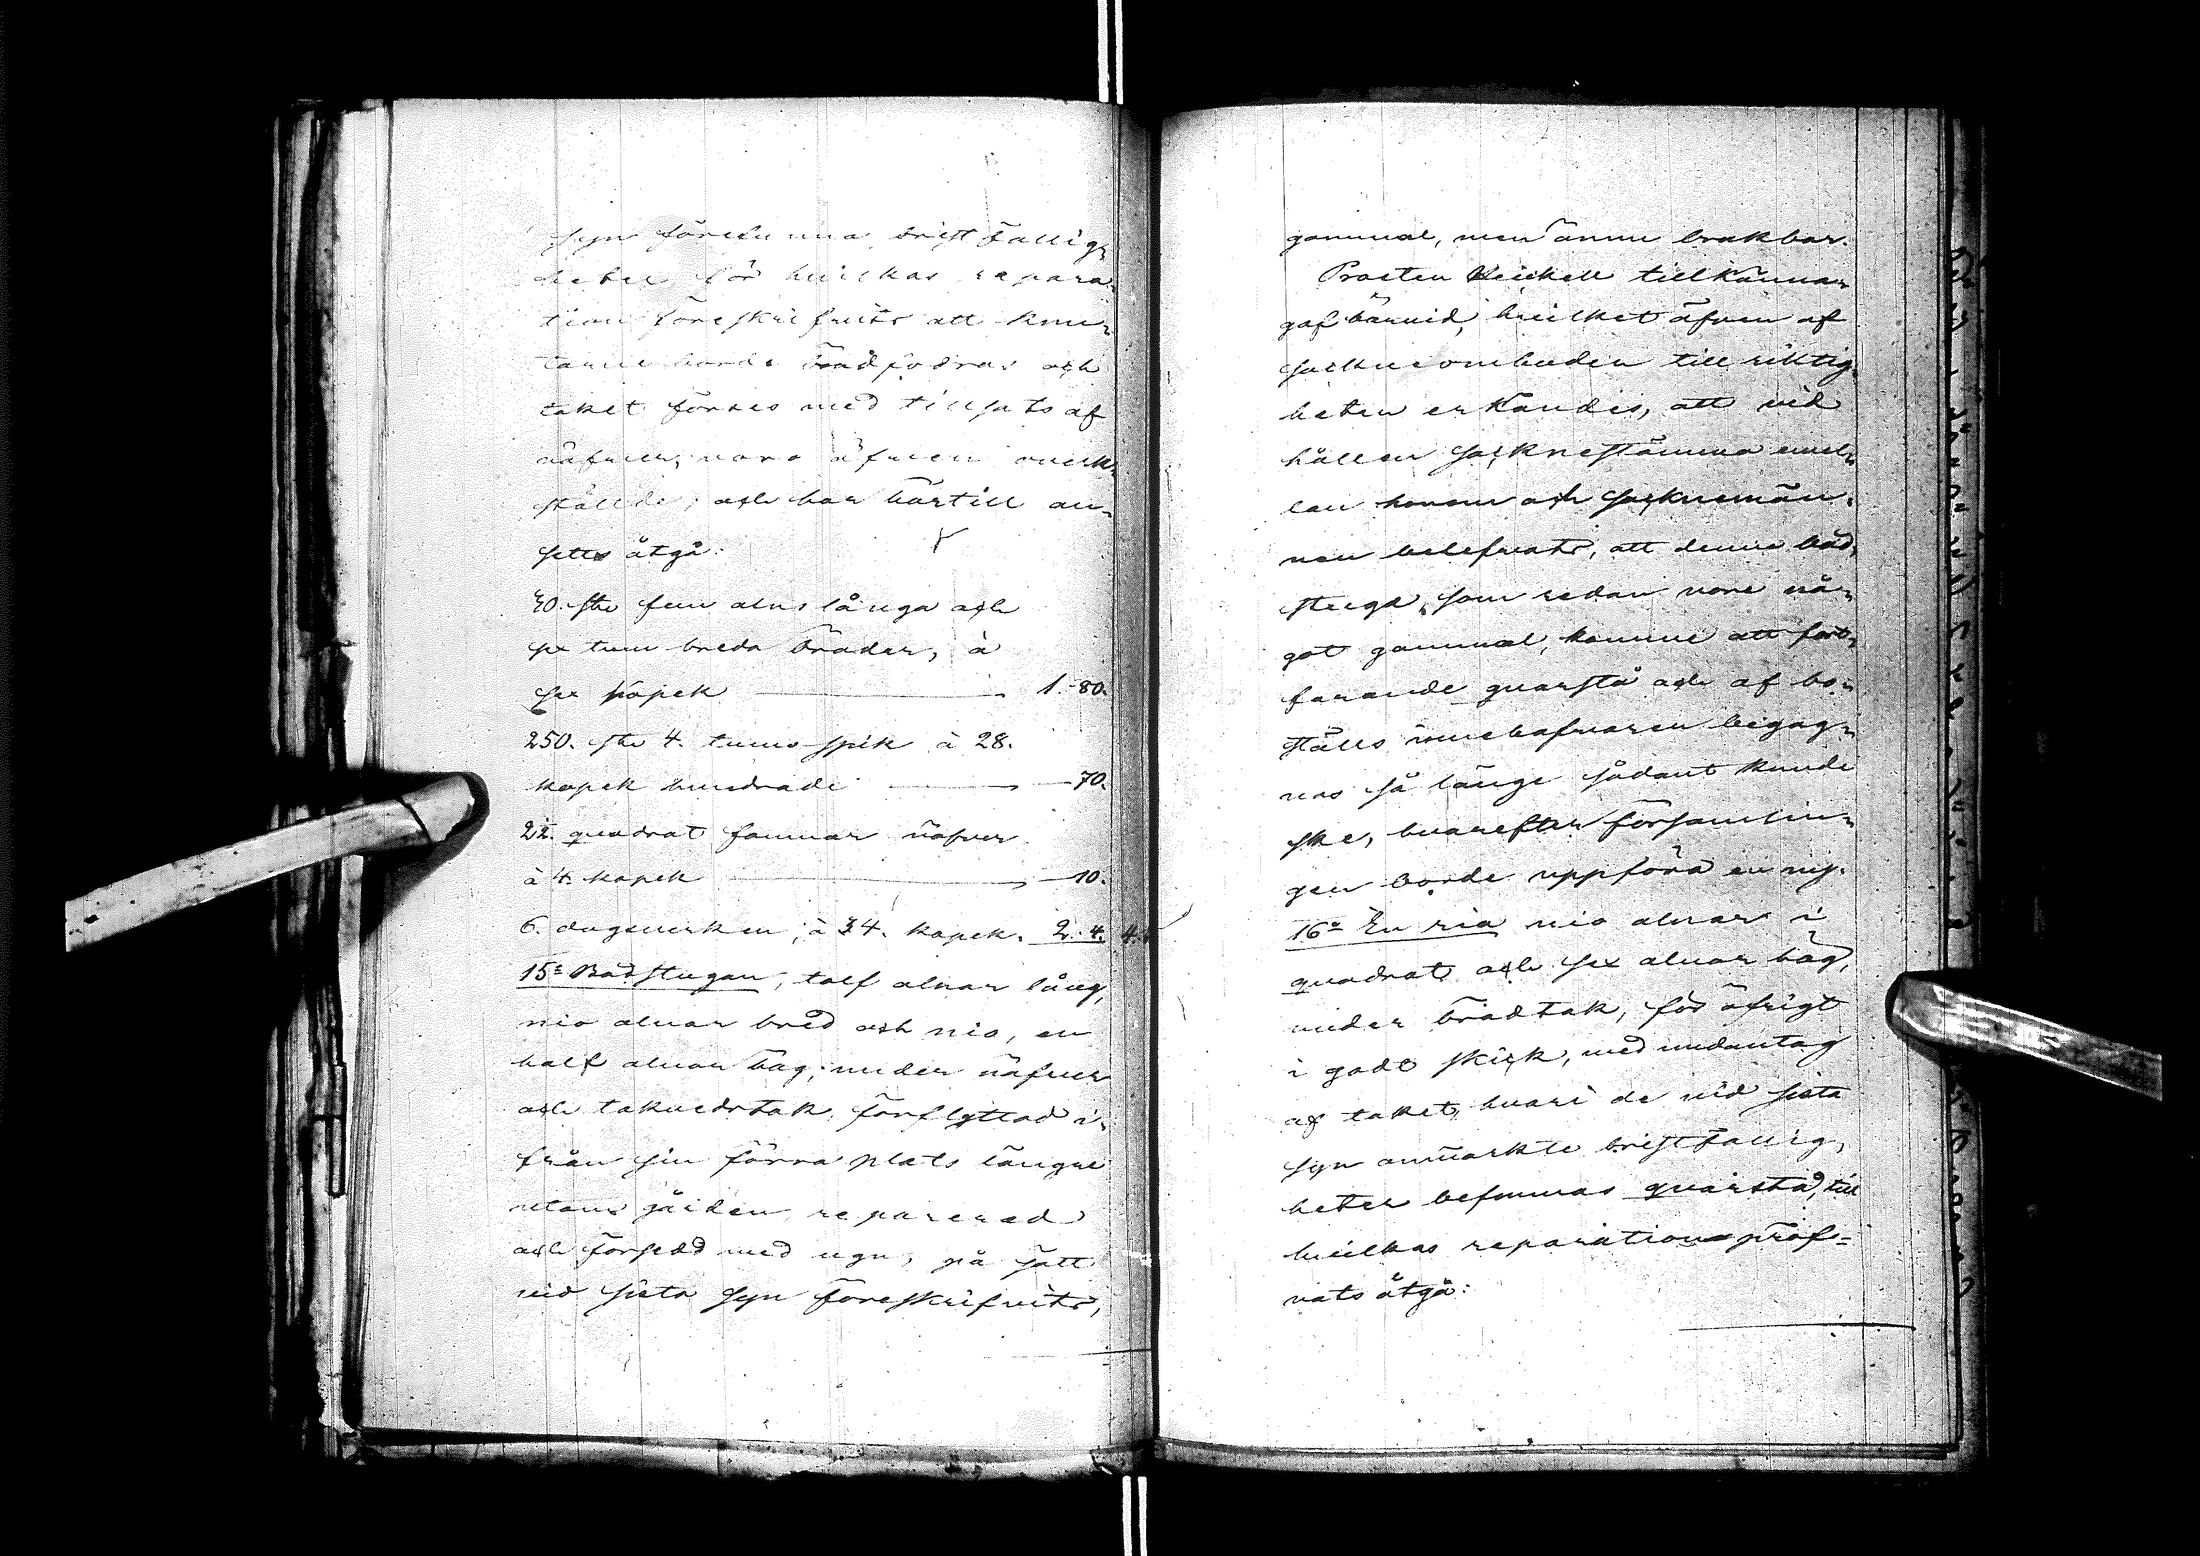 syn förefunna bristfällig¬
heter för hvilkas repara¬
tion föreskrifvits att knu¬
tarne borde brädfodras och
taket förses med tillsats af
näfver, voro äfven verk¬
ställde; och har härtill an¬
setts åtgå:
30. st. fem alns långa och
sex tum breda bräder, à
sex kopek 1.-80.
250. st. 4. tums spik à 28.
kopek hundrade -70.
2½ quadrat famnar näfver
à 4. kopek -10.
6. dagsverken, à 34. kopek. 2. 4. 4.
15º Badstugan, tolf alnar lång,
nio alnar bred och nio, en
half alnar hög, under näfver
och takvedstak, förflyttad i¬
från sin förra plats längre
utom gården, reparerad
och försedd med ugn, på sätt
vid sista syn föreskrifvits,
gammal, men ännu brukbar.
Prosten Heickell tillkänna¬
gaf härvid, hvilket äfven af
sockneombuden till riktig¬
heten erkändes, att vid
hållen socknestämma emel¬
lan honom och socknemän¬
nen blefvats, att denna bad¬
stuga, som redan vore nå¬
got gammal, komme att fort¬
farande qvarstå och af bo¬
ställs innehafvaren begag¬
nas så länge sådant kunde
ske, hvarefter församlin¬
gen borde uppföra en ny.
16º En ria nio alnar i
quadrat och sex alnar hög,
under brädtak, för öfrigt
i godt skick, med undantag
af taket, hvari de vid sista
syn anmärkte bristfällig¬
heter befunnas qvarstå, till
hvilkas reparation pröf=
vats åtgå: